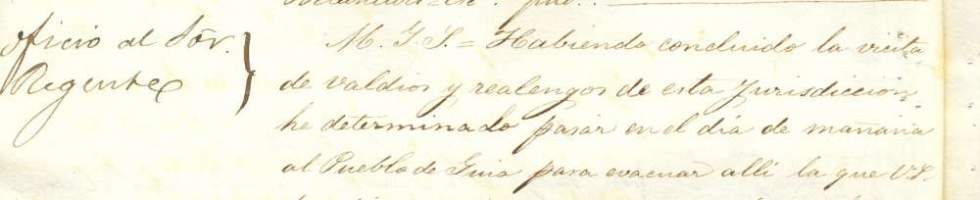 Oficio al Sôr.
Regente
M. I. S. = Habiendo concluido la vicita
de valdios y realengos de esta Jurisdiccion,
he determinado pasar en el dia de mañana
al Pueblo de Guia para evacuar alli la que V.S.